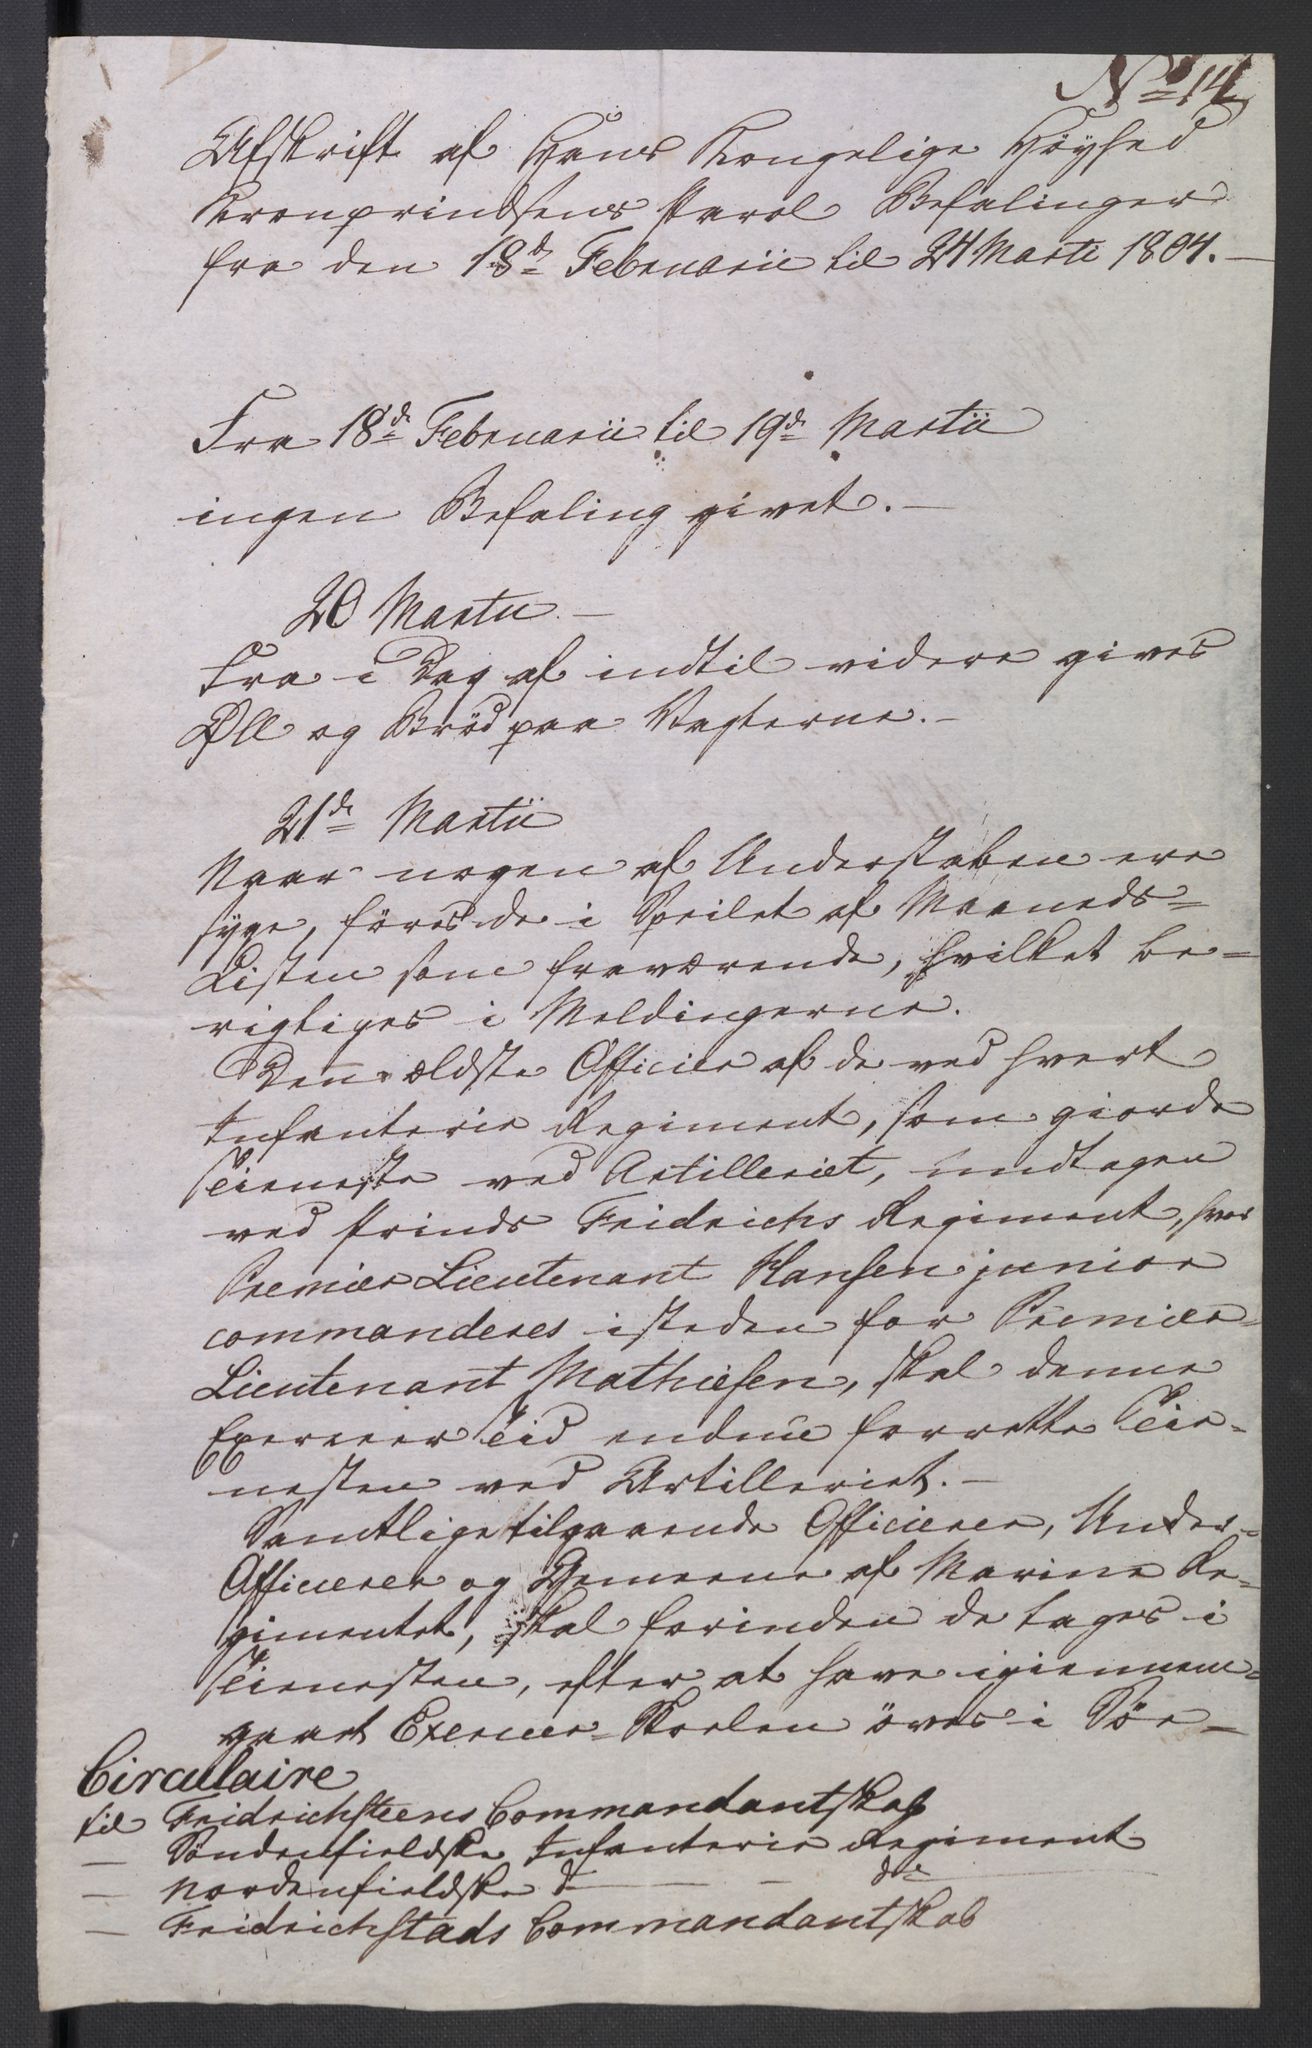 No 14
Afskrift af Hans Kongelige Höyhed
Kronprindsens Parol Befalinger
fra den 18de Februarii til 24 Martii 1804.
Fra 18de Februarii til 19de Martii
ingen Befaling givet.
20 Martii
Fra i Dag af indtil videre gives
Øll og Bröd paa Vagterne.
21de Martii
Naar nogen af Understaben ere
syge, föres de i Speilet af Maaneds-
Listen som fraværende, hvilket be-
rigtiges i Meldingerne.
Den ældste Officier af de ved hvert
Infanterie Regiment, som giorde
Tieneste ved Artilleriet, undtagen
ved Prinds Fridrichs Regiment, hvor
Premier Lieutenant Hansen junior
commanderes isteden for Premier-
Lieutenant Mathiesen, skal denne
Exerceer Tiid endnu forrette Tie-
nesten ved Artilleriet.
Samtlige tilgaaende Officierer, Under-
Officierer og Gemeene af Marine Re-
gimentet, skal forinden de tages i
Tienesten, efter at have igiennem-
gaaet Exerceer-Skolen öves i Söe-
Circulaire
til Fridrichsteens Commandantskab
— Söndenfieldske Infanterie Regiment
— Nordenfieldske do — — do
— Fridrichstads Commandantskab